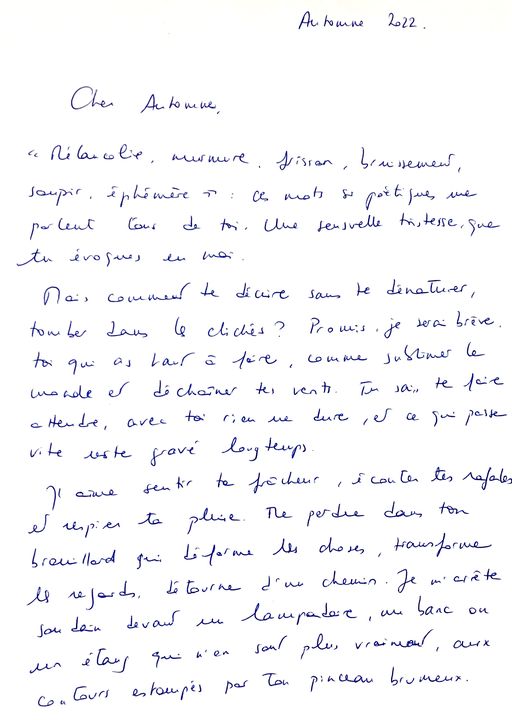 Automne 2022.
Cher Automne,
" Mélancolie, murmure, frisson, bruissement,
soupir, éphémère " : ces mots si poétiques me
parlent tous de toi. Une sensuelle tristesse, que
tu évoques en moi.
Mais comment te décrire sans te dénaturer,
tomber dans les clichés ? Promis, je serai brève,
toi qui as tant à faire, comme sublimer le
monde et déchaîner tes vents. Tu sais te faire
attendre, avec toi rien ne dure, et ce qui passe
vite reste gravé longtemps.
J'aime sentir ta fraîcheur, écouter tes rafales
et respirer ta pluie. Me perdre dans ton
brouillard qui déforme les choses, transforme
les regards, détourne d'un chemin. Je m'arrête
soudain devant un lampadaire, un banc ou
un étang qui n'en sont plus vraiment, aux
contours estompés par ton pinceau brumeux.